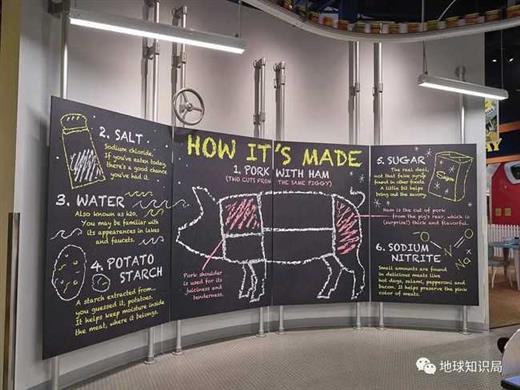 HOW IT'S MADE
1. PORK WITH HAM
(TWO CUTS FROM THE SAME PIGGY)
Pork shoulder
is used for its
juiciness and
tenderness.
Ham is the cut of pork
from the pig's rear, which is
(surprise!) thick and flavorful.
2. SALT
Sodium chloride.
If you've eaten today,
there's a good chance
you've had it.
3. WATER
Also known as h2o.
You may be familiar with
its appearances in lakes
and faucets.
4. POTATO
STARCH
A starch extracted from,
you guessed it, potatoes.
It helps keep moisture inside
the meat, where it belongs.
5. SUGAR
The real deal,
not that fake syrup
found in other foods.
A little bit helps
bring out the
Sugar
6. SODIUM
NITRITE
Small amounts are found
in delicious meats like
hot dogs, salami, pepperoni and
bacon. It helps preserve the pink
color of meats.
Na
O
N
O
AY
地球知识局